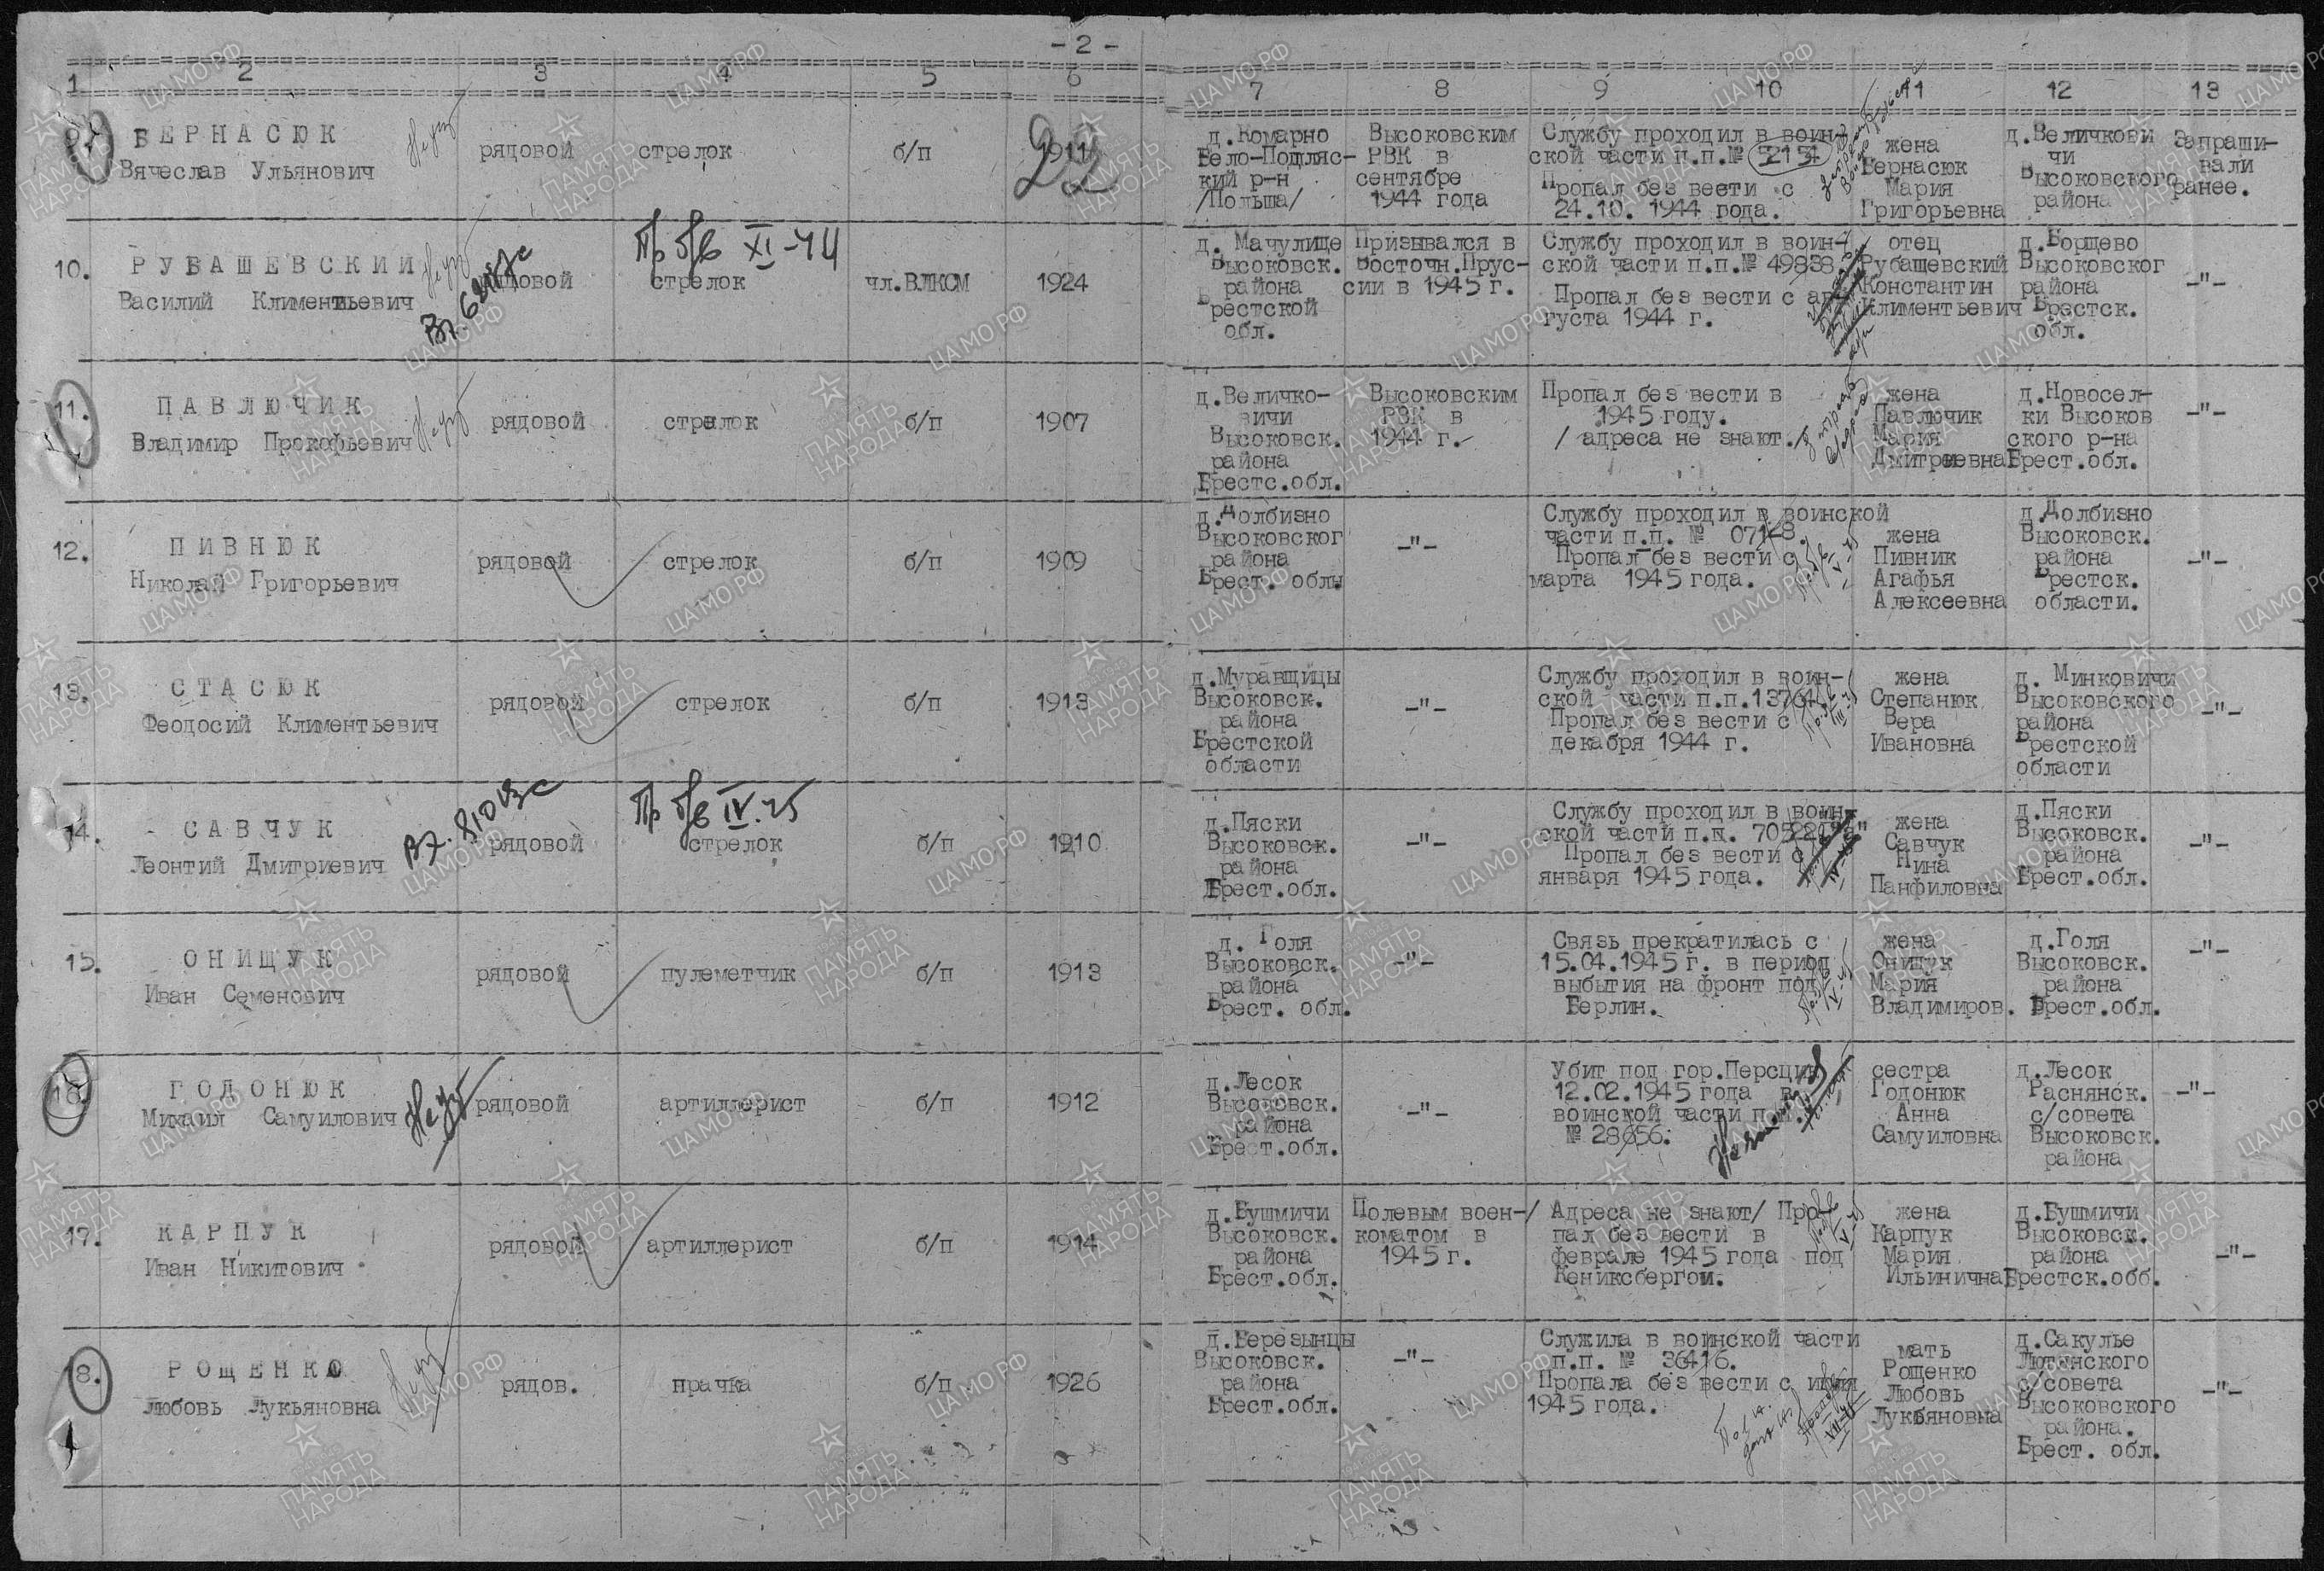 - 2 -
1 2 3 4 5 6 7 8 9 10 11 12 13
9.
БЕРНАСЮК
Вячеслав Ульянович
рядовой
стрелок
б/п
1911
22
д.Комарно
Бело-Подляс-
кий р-н
/Польша/
Высоковским
РВК в
сентябре
1944 года
Службу проходил в воин-
ской части п.п.№
Пропал без вести с
24.10. 1944 года.
жена
Бернасюк
Мария
Григорьевна
д.Величкови
чи
Высоковского
района
Запраши-
вали
ранее.
10.
РУБАШЕВСКИЙ
Василий Климентьевич
рядовой
Пр б/в XI-44
стрелок
чл.ВЛКСМ
1924
д. Мачулище
Высоковск.
района
Брестской
обл.
Призывался в
Восточн.Прус-
сии в 1945 г.
Службу проходил в воин-
ской части п.п.№ 49838
Пропал без вести с ав-
густа 1944 г.
отец
Рубашевский
Константин
Климентьевич
д.Борщево
Высоковског
района
Брестск.
обл.
-"-
11.
ПАВЛЮЧИК
Владимир Прокофьевич
рядовой
стрелок
б/п
1907
д.Величко-
вичи
Высоковск.
района
Брестс.обл.
Высоковским
РВК в
1944 г.
Пропал без вести в
1945 году.
/ адреса не знают./
жена
Павлючик
Мария
Дмитриевна
д.Новосел-
ки Высоков
ского р-на
Брест.обл.
-"-
12.
ПИВНЮК
Николай Григорьевич
рядовой
стрелок
б/п
1909
д.Долбизно
Высоковског
района
Брест. облы
-"-
Службу проходил в воинской
части п.п. №
Пропал без вести с
марта 1945 года.
жена
Пивник
Агафья
Алексеевна
д.Долбизно
Высоковск.
района
Брестск.
области.
-"-
13.
СТАСЮК
Феодосий Климентьевич
рядовой
стрелок
б/п
1913
д.Муравщицы
Высоковск.
района
Брестской
области
-"-
Службу проходил в воин-
ской части п.п.
Пропал без вести с
декабря 1944 г.
жена
Степанюк
Вера
Ивановна
д. Минковичи
Высоковского
района
Брестской
области
-"-
14.
САВЧУК
Леонтий Дмитриевич
рядовой
Пр б/в IV.45
стрелок
б/п
1910
д.Пяски
Высоковск.
района
Брест.обл.
-"-
Службу проходил в воин-
ской части п.п.
Пропал без вести с
января 1945 года.
жена
Савчук
Нина
Панфиловна
д.Пяски
Высоковск.
района
Брест.обл.
-"-
15.
ОНИЩУК
Иван Семенович
рядовой
пулеметчик
б/п
1913
д. Голя
Высоковск.
района
Брест. обл.
-"-
Связь прекратилась с
15.04.1945 г. в период
выбытия на фронт под
Берлин.
жена
Онищук
Мария
Владимиров.
д.Голя
Высоковск.
района
Брест.обл.
-"-
16.
ГОДОНЮК
Михаил Самуилович
рядовой
артиллерист
б/п
1912
д.Лесок
Высоковск.
района
Брест.обл.
-"-
Убит под гор.Персцин
12.02.1945 года в
воинской части п.п.
№ 28656.
сестра
Годонюк
Анна
Самуиловна
д.Лесок
Раснянск.
с/совета
Высоковск.
района
-"-
17.
КАРПУК
Иван Никитович
рядовой
артиллерист
б/п
1914
д.Бушмичи
Высоковск.
района
Брест.обл.
Полевым воен-
коматом в
1945 г.
/ Адреса не знают/ Про-
пал без вести в
феврале 1945 года под
Кениксбергом.
жена
Карпук
Мария
Ильинична
д.Бушмичи
Высоковск.
района
Брестск.обб.
-"-
18.
РОЩЕНКО
Любовь Лукьяновна
рядов.
прачка
б/п
1926
д.Березынцы
Высоковск.
района
Брест.обл.
-"-
Служила в воинской части
п.п. № 36416.
Пропала без вести с июля
1945 года.
мать
Рощенко
Любовь
Лукьяновна
д.Сакулье
Лютинского
с/совета
Высоковского
района.
Брест. обл.
-"-
ЦАМО РФ
ПАМЯТЬ
НАРОДА